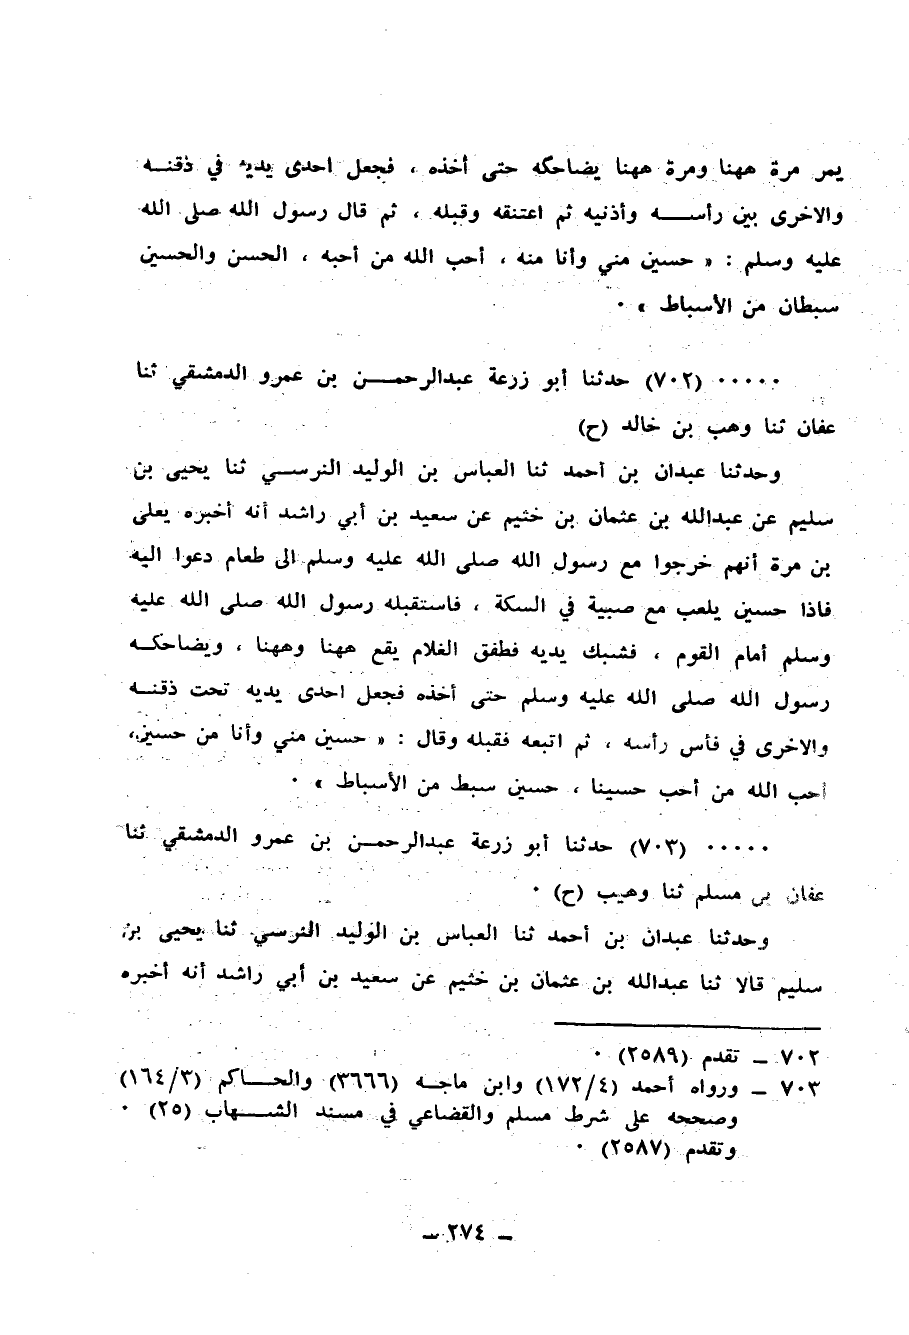 يمر مرة ههنا ومرة ههنا يضاحكه حتى أخذه ، فجعل احدى يديه في ذقنـه
والاخرى بين رأســـه وأذنيه ثم اعتنقه وقبله ، ثم قال رسول الله صلى الله
عليه وسلم : « حسين مني وأنا منه ، أحب الله من أحبه ، الحسن والحسين
سبطان من الأسباط » ٠
٠٠٠٠٠ (٧٠٢) حدثنا أبو زرعة عبدالرحمـــن بن عمرو الدمشقي ثنا
عفان ثنا وهب بن خالد (ح)
وحدثنا عبدان بن أحمد ثنا العباس بن الوليد النرســـي ثنا يحيى بن
سليم عن عبدالله بن عثمان بن خثيم عن سعيد بن أبي راشد أنه أخبره يعلى
بن مرة أنهم خرجوا مع رسول الله صلى الله عليه وسلم الى طعام دعوا اليه
فاذا حسين يلعب مع صبية في السكة ، فاستقبله رسول الله صلى الله عليه
وسلم أمام القوم ، فشبك يديه فطفق الغلام يقع ههنا وههنا ، ويضاحكـه
رسول الله صلى الله عليه وسلم حتى أخذه فجعل احدى يديه تحت ذقنـه
والاخرى في فأس رأسه ، ثم اتبعه فقبله وقال : « حسين مني وأنا من حسين،
أحب الله من أحب حسينا ، حسين سبط من الأسباط » ٠
٠٠٠٠٠ (٧٠٣) حدثنا أبو زرعة عبدالرحمـــن بن عمرو الدمشقي ثنا
عفان بن مسلم ثنا وهيب (ح) ٠
وحدثنا عبدان بن أحمد ثنا العباس بن الوليد النرسي ثنا يحيى بن
سليم قالا ثنا عبدالله بن عثمان بن خثيم عن سعيد بن أبي راشد أنه أخبره
٧٠٢ ــ تقدم (٢٥٨٩) ٠
٧٠٣ ــ ورواه أحمد (١٧٢/٤) وابن ماجـه (٣٦٦٦) والحـــاكم (١٦٤/٣)
وصححه على شرط مسلم والقضاعي في مسند الشـــهاب (٢٥) ٠
وتقدم (٢٥٨٧) ٠
ــ ٢٧٤ ــ